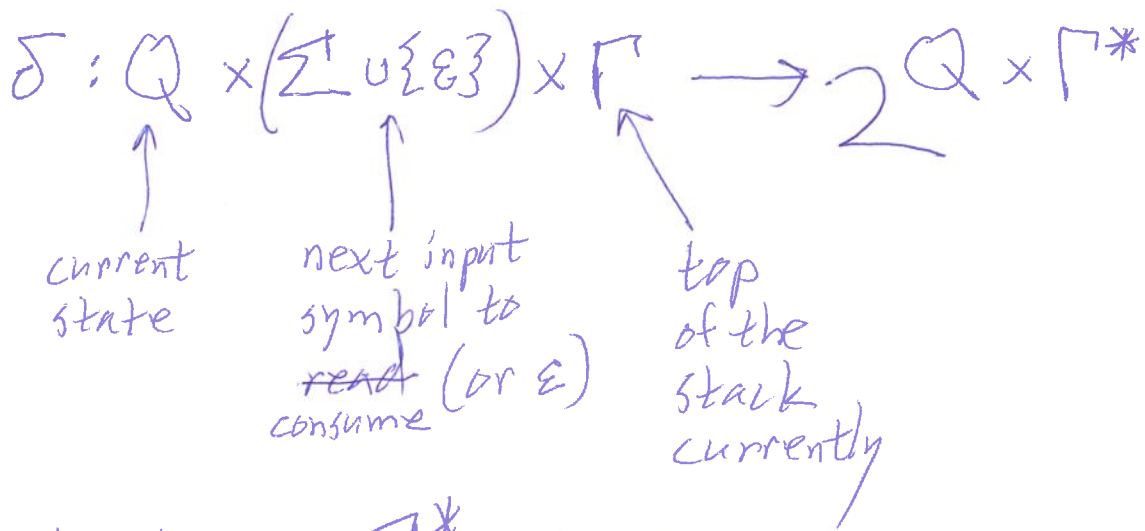 δ : Q × (Σ ∪ {ε}) × Γ → 2^{Q × Γ*}
current
state
next input
symbol to
~~read~~ (or ε)
consume
top
of the
stack
currently
Γ*